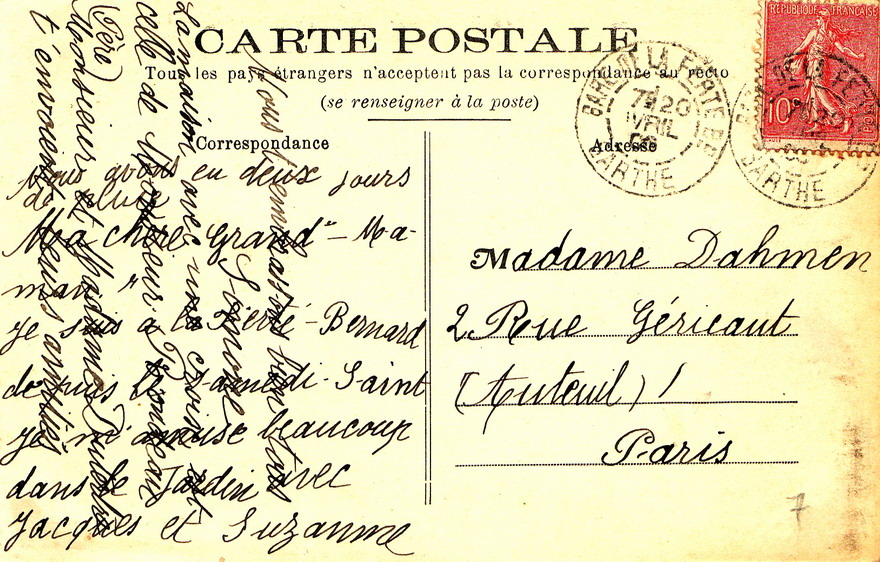 CARTE POSTALE
Tous les pays étrangers n'acceptent pas la correspondance au recto
(se renseigner à la poste)
Correspondance
Adresse
Nous avons eu deux jours
de pluie
Ma chère Grand-Ma-
man
Je suis à la Ferté-Bernard
depuis le Samedi-Saint
je m'amuse beaucoup
dans le Jardin avec
Jacques et Suzanne
La maison avec nos
celle de Monsieur
(Père)
Monsieur et Madame
t'envoient leurs amitiés
Nous t'embrassons bien tous
Simone
Madame Dahmen
2 Rue Géricaut
(Auteuil) !
Paris
RÉPUBLIQUE FRANÇAISE
10c
GARE DE LA FERTE
20
AVRIL
SARTHE
SARTHE
7